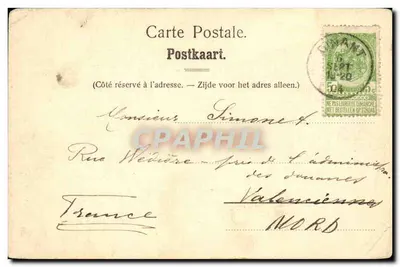 Carte Postale.
Postkaart.
(Côté réservé à l'adresse. — Zijde voor het adres alleen.)
DINANT
SEPT
04
NE PAS LIVRER LE DIMANCHE
NIET BESTELLEN OP ZONDAG
Monsieur Simonet.
Rue — près de l'administra.
des douanes
Valenciennes
France
NORD
PICARETON